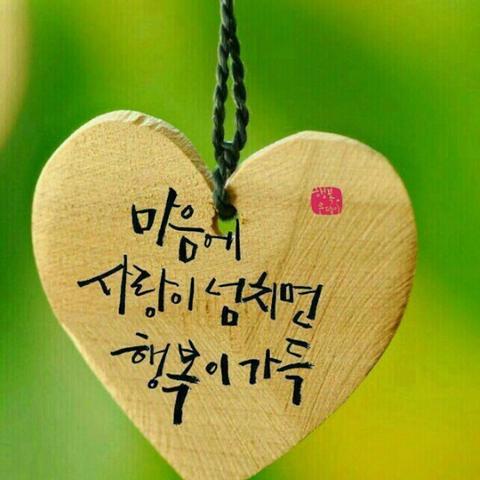 마음에
사랑이 넘치면
행복이 가득
행복